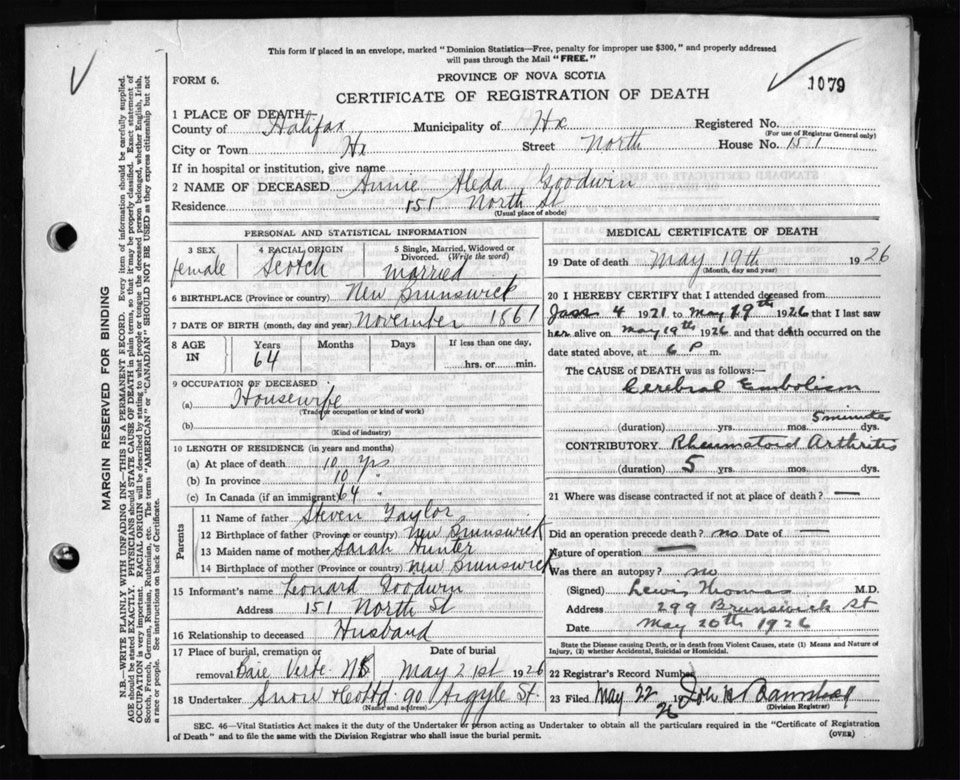 This form if placed in an envelope, marked "Dominion Statistics—Free, penalty for improper use $300," and properly addressed
will pass through the Mail "FREE."
FORM 6.
PROVINCE OF NOVA SCOTIA
1079
CERTIFICATE OF REGISTRATION OF DEATH
1 PLACE OF DEATH
County of Halifax Municipality of Hx Registered No.
(For use of Registrar General only)
City or Town Hx Street North House No. 151
If in hospital or institution, give name
2 NAME OF DECEASED Annie Aleda Goodwin
Residence 151 North St
(Usual place of abode)
PERSONAL AND STATISTICAL INFORMATION
3 SEX 4 RACIAL ORIGIN 5 Single, Married, Widowed or Divorced. (Write the word)
female Scotch married
6 BIRTHPLACE (Province or country) New Brunswick
7 DATE OF BIRTH (month, day and year) November 1861
8 AGE IN Years Months Days If less than one day,
64 hrs. or min.
9 OCCUPATION OF DECEASED
(a) Housewife
(Trade or occupation or kind of work)
(b)
(Kind of industry)
10 LENGTH OF RESIDENCE (in years and months)
(a) At place of death 10 yrs
(b) In province 10 "
(c) In Canada (if an immigrant) 64 "
Parents
11 Name of father Steven Taylor
12 Birthplace of father (Province or country) New Brunswick
13 Maiden name of mother Sarah Hunter
14 Birthplace of mother (Province or country) New Brunswick
15 Informant's name Leonard Goodwin
Address 151 North St
16 Relationship to deceased Husband
17 Place of burial, cremation or
removal Baie Verte NB May 21st 1926
18 Undertaker Snow & Co Ltd 90 Argyle St.
(Name and address)
MEDICAL CERTIFICATE OF DEATH
19 Date of death May 19th 1926
(Month, day and year)
20 I HEREBY CERTIFY that I attended deceased from
4 1921 to May 19th 1926 that I last saw
her alive on May 19th 1926 and that death occurred on the
date stated above, at 6 P m.
The CAUSE OF DEATH was as follows:—
Cerebral Embolism
5 minutes
(duration) yrs. mos. dys.
CONTRIBUTORY Rheumatoid Arthritis
(duration) 5 yrs. mos. dys.
21 Where was disease contracted if not at place of death? —
Did an operation precede death? no Date of —
Nature of operation —
Was there an autopsy? no
(Signed) Lewis Thomas M.D.
Address 299 Brunswick St
Date May 20th 1926
State the Disease causing Death, or in death from Violent Causes, state (1) Means and Nature of
Injury, (2) whether Accidental, Suicidal or Homicidal.
22 Registrar's Record Number
23 Filed May 22 1926
(Division Registrar)
SEC. 46—Vital Statistics Act makes it the duty of the Undertaker or person acting as Undertaker to obtain all the particulars required in the "Certificate of Registration
of Death" and to file the same with the Division Registrar who shall issue the burial permit.
(OVER)
MARGIN RESERVED FOR BINDING
N.B.—WRITE PLAINLY WITH UNFADING INK—THIS IS A PERMANENT RECORD. Every item of information should be carefully supplied.
AGE should be stated EXACTLY. PHYSICIANS should STATE CAUSE OF DEATH in plain terms, so that it may be properly classified. Exact statement of
OCCUPATION is very important. RACIAL ORIGIN will be described by stating to what people or tongue the deceased person belonged, whether English, Irish,
Scotch, French, German, Russian, Ruthenian, etc. The terms "AMERICAN" or "CANADIAN" SHOULD NOT BE USED as they express citizenship but not
a race or people. See instructions on back of Certificate.